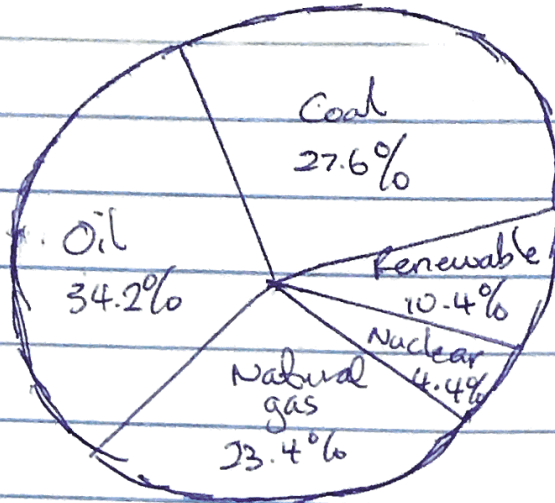 Coal
27.6%
Oil
34.2%
Renewable
10.4%
Nuclear
4.4%
Natural
gas
23.4%